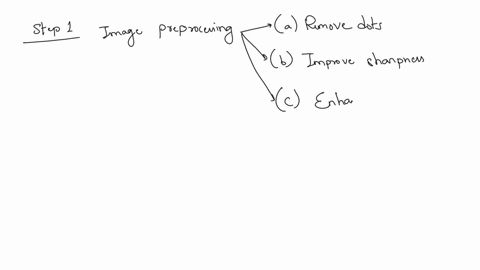 Step 1 Image preprocessing (a) Remove dots
(b) Improve sharpness
(c) Enha